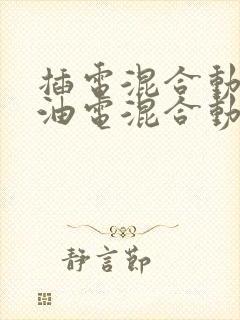 插電混合動
油電混合動
靜言節